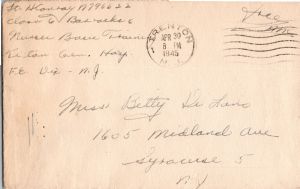 Class 6 Barracks 6
Nurses Basic Training
Tilton Gen. Hosp.
Ft. Dix - N.J.
TRENTON
APR 30
8 PM
1945
N.J.
Free
Miss Betty De Lano
1605 Midland Ave
Syracuse 5
N Y